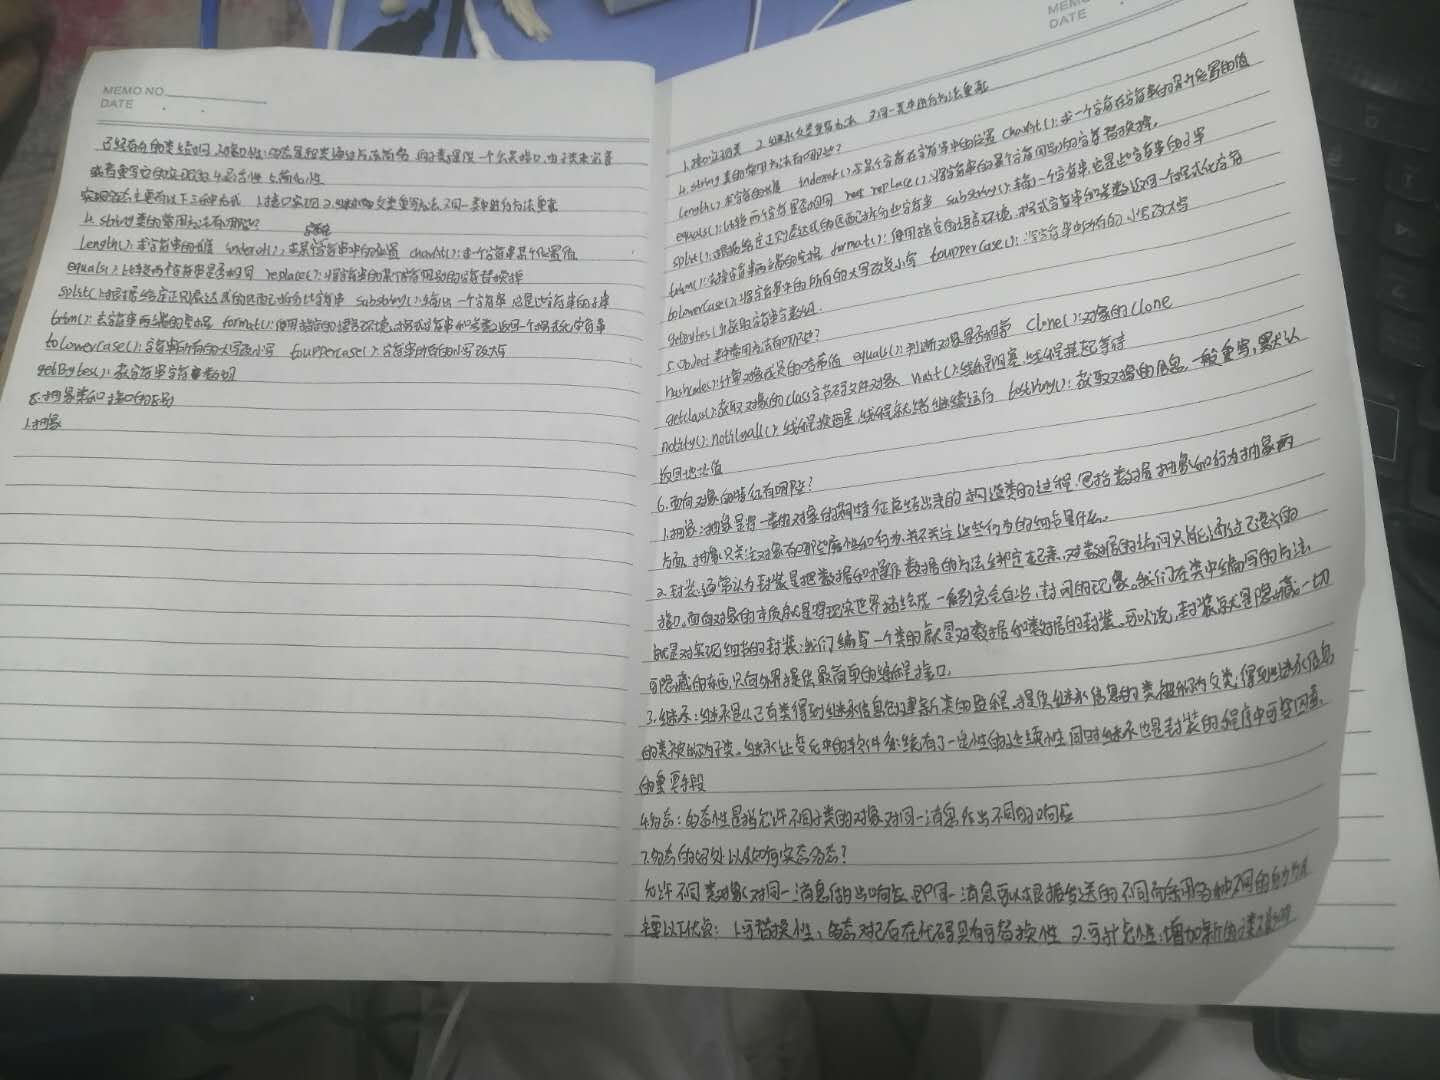 MEMO NO.
DATE
已经存在的类结构 3.接口性:多态是超类通过方法签名,向子类提供一个公共接口,由子类来完善
或者重写它的实现的 4.灵活性 5.简化性
实现多态主要有以下三种方式 1.接口实现 2.继承父类重写方法 3.同一类中进行方法重载
4. string类的常用方法有哪些?
length():求字符串的值 indexof():求某字符串中的位置 charAt():求一个字符串某个位置值
equals():比较两个字符串是否相同 replace():将字符串的某个字符用别的字符替换掉
split():根据给定正则表达式的匹配拆分此字符串 substring():输出一个字符串,总是此字符串的子串
trim():去字符串两端的空格 format():使用指定的语言环境、格式字符串和参数返回一个格式化字符串
toLowerCase():字符串所有的大写改小写 toupperCase():字符串所有的小写改大写
getBytes():获字符串字符数组
8.抽象类和接口的区别
1.抽象
MEMO
DATE
1.接口实现类 2.继承父类重写方法 3.同一类中进行方法重载
4. string类的常用方法有哪些?
length():求字符的值 indexof():求某个字符在字符串中的位置 charAt():求一个字符在字符串的某个位置的值
equals():比较两个字符是否相同 replace():将字符串的某个字符用别的字符替换掉.
split():根据给定正则表达式的匹配拆分此字符串 substring():输一个字符串,总是此字符串的子串
trim():去掉字符串两端的空格 format():使用指定的语言环境、格式字符串和参数返回一个格式化字符
toLowerCase():将字符串中的所有的大写改成小写 toupperCase():将字符串中所有的小写改大写
getBytes():获取字符串字节数组.
5. Object 类中常用方法有哪些?
hashcode():计算对象成员的哈希值 equals():判断对象是否相等 Clone():对象的Clone
getclass():获取对象的class字节码文件对象 wait():线程阻塞,线程挂起等待
notify():notilyall():线程被唤醒,线程就绪继续运行 tostring():获取对象的信息,一般重写,默认
返回地址值
6.面向对象的特征有哪些?
1.抽象:抽象是将一类的对象的特征总结出来的构造类的过程,包括数据抽象和行为抽象两
方面,抽象只关注对象有哪些属性和行为,并不关注这些行为的细节是什么.
2.封装:通常认为封装是把数据和操作数据的方法绑定起来,对数据的访问只能通过已定义的
接口。面向对象的本质就是将现实世界描绘成一系列完全自治,封闭的现象。我们在类中编写的方法
就是对实现细节的封装;我们编写一个类的就是对数据和数据的封装。可以说,封装就是隐藏一切
可隐藏的东西,只向外界提供最简单的编程接口.
3.继承:继承是从已有类得到继承信息创建新类的过程.提供继承信息的类被称为父类;得到继承信息
的类被称为子类。继承让变化中的软件系统有了一定性的延续性,同时继承也是封装的程序中可变因素
的重要手段
4.多态:多态性是指允许不同子类的对象对同一消息作出不同的响应
7.多态的好处以及如何实态多态?
允许不同类对象对同一消息做出响应,即同一消息可以根据发送的不同而采用多种不同的
主要以下优点: 1.可替换性,多态对已存在代码具有可替换性 2.可扩充性:增加新的